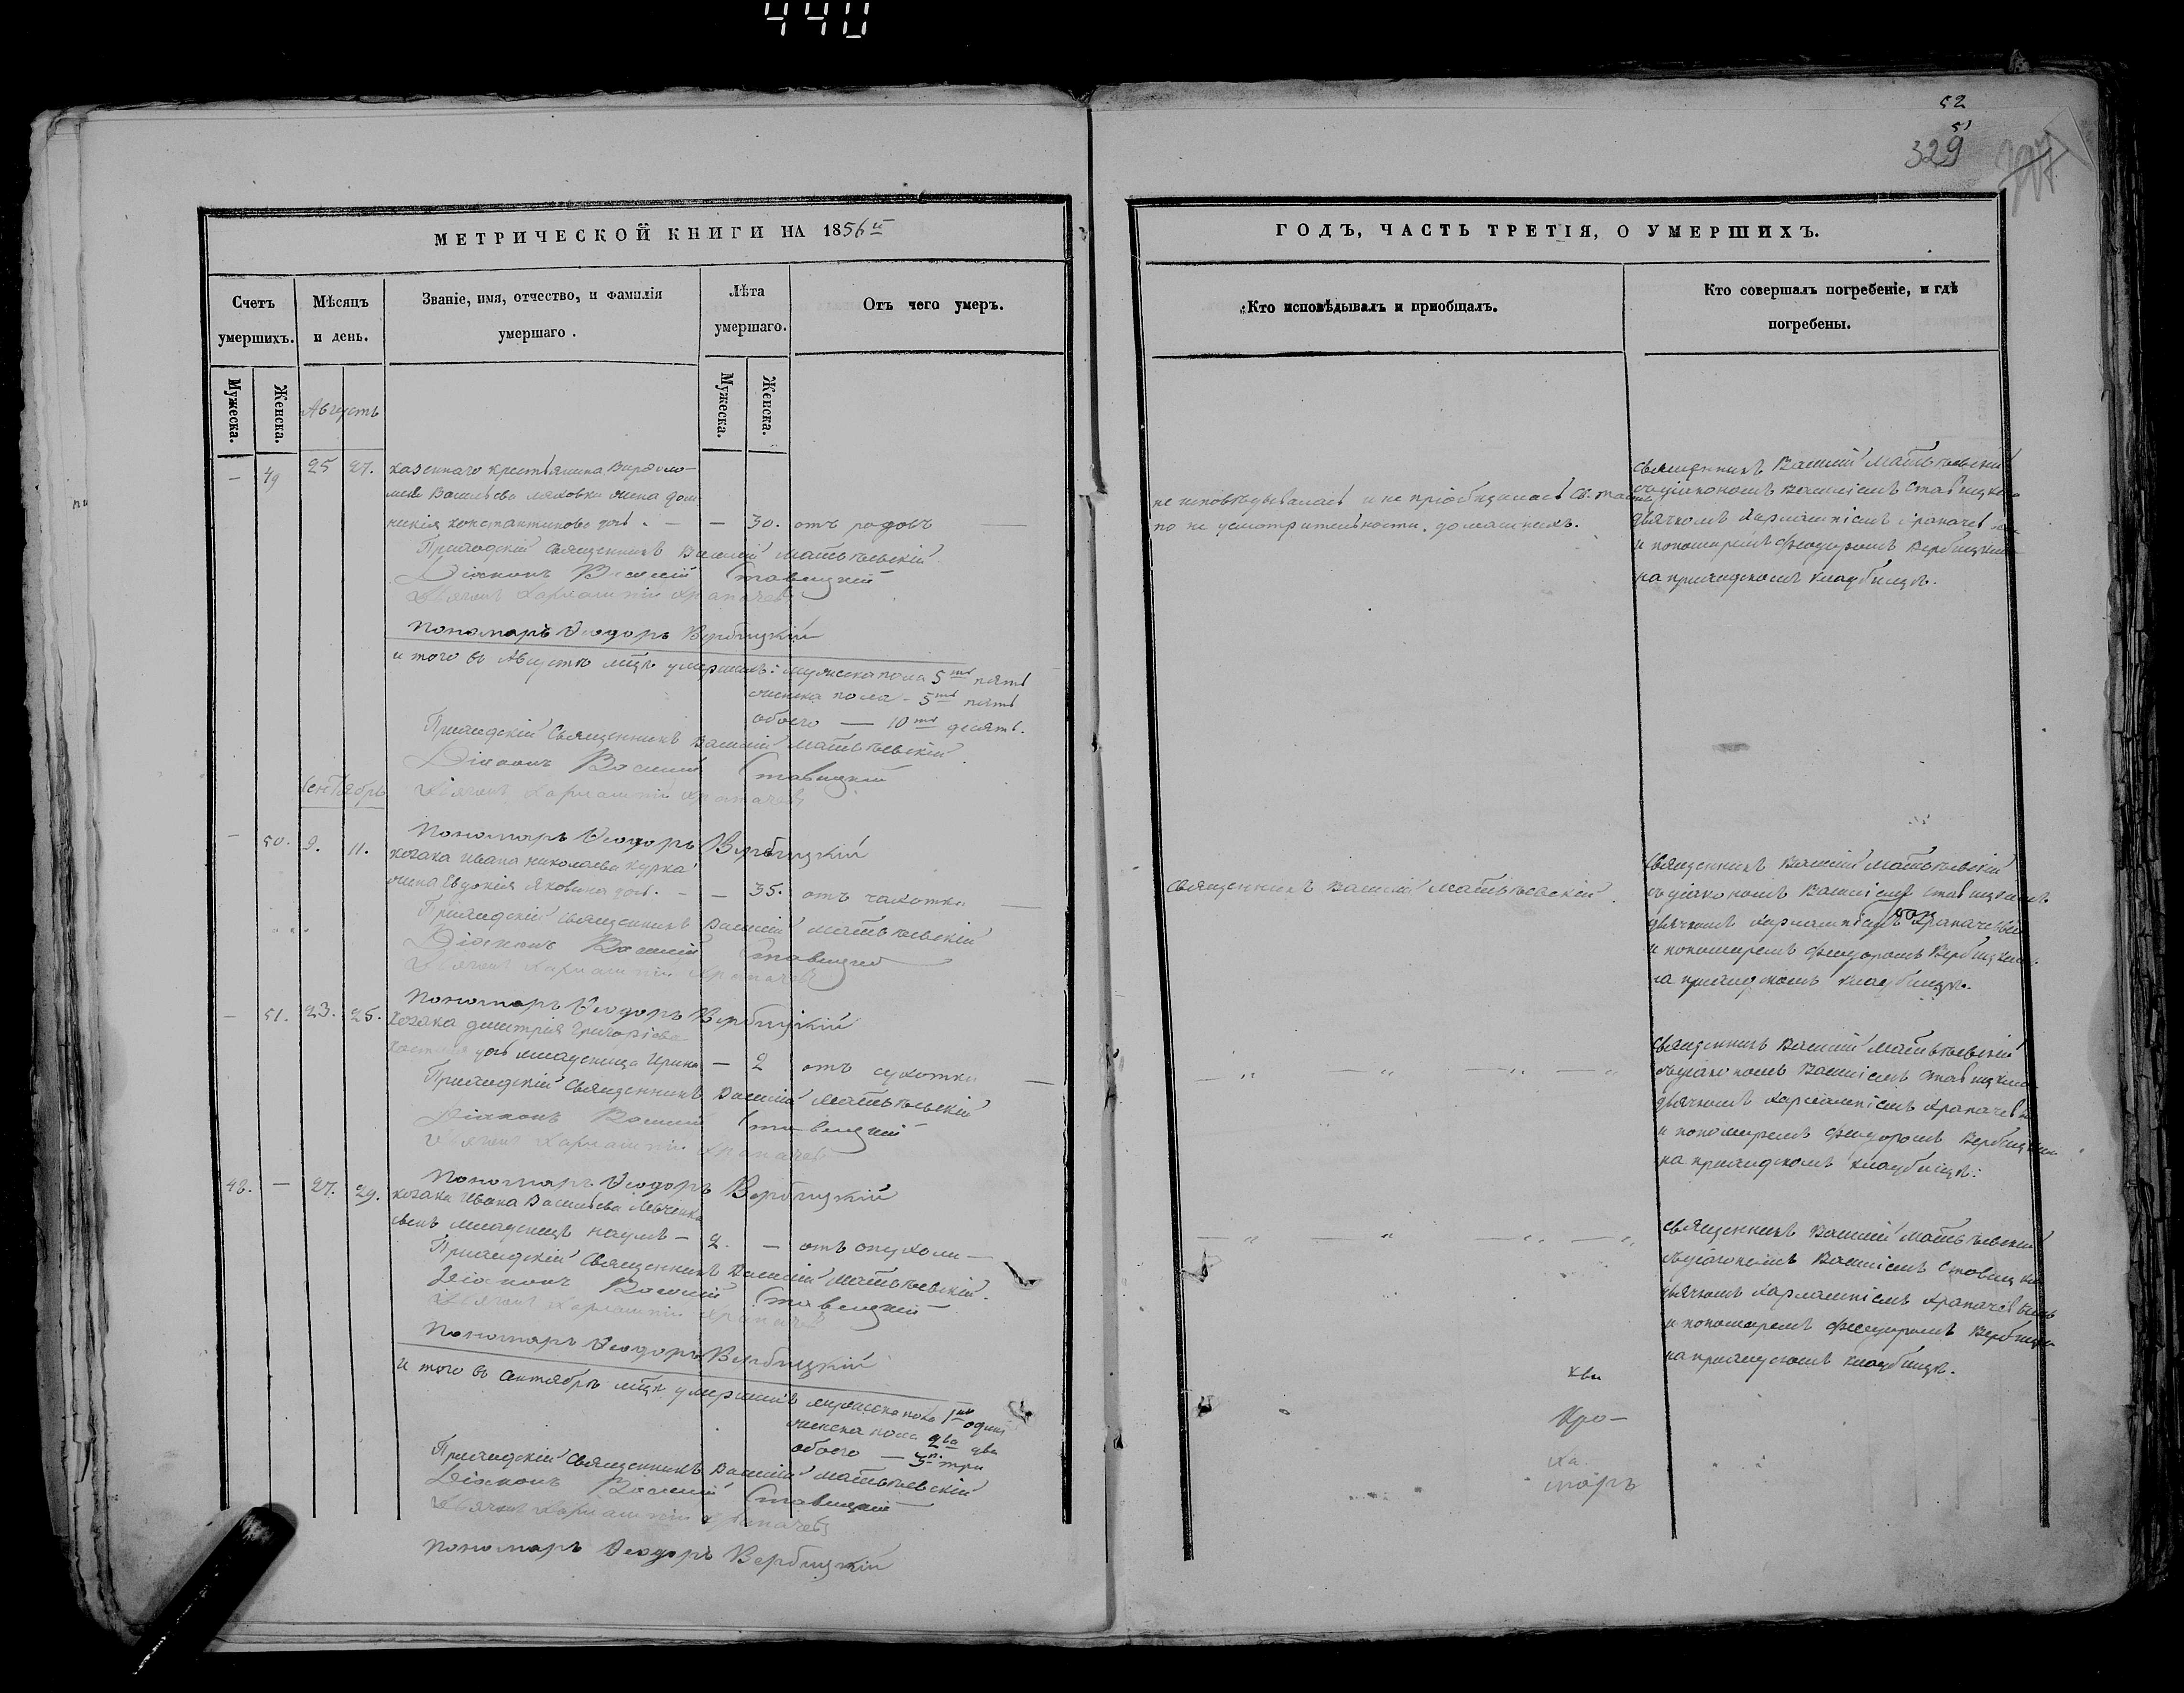 440
52
51
329
МЕТРИЧЕСКОЙ КНИГИ НА 1856й
Счетъ умершихъ.
Мѣсяцъ и день.
Званіе, имя, отчество, и фамилія умершаго.
Лѣта умершаго.
Отъ чего умеръ.
Мужеска.
Женска.
Мужеска.
Женска.
Августъ
— 49 25 27. казеннаго крестьянина Варѳоло-
мея Васильева Ляховки жена Дом-
никія Константинова дочь. — — 30. отъ родовъ
Приходскій Священникъ Василій Матвѣевскій
Діаконъ Василій Ставицкій
Дьячокъ Харлампій
Пономарь Ѳеодоръ Вербицкій
и того въ Августѣ мцѣ умершихъ: мужеска пола 5ть пять
женска пола — 5ть пять
обоего — 10ть десять.
Приходскій Священникъ Василій Матвѣевскій
Діаконъ Василій Ставицкій
Сентябрь
Дьячокъ Харлампій
Пономарь Ѳеодоръ Вербицкій
— 50. 9. 11. козака Ивана Николаева Курка
жена Евдокія Яковлева дочь. — — 35. отъ чахотки
Приходскій Священникъ Василій Матвѣевскій
Діаконъ Василій Ставицкій
Дьячокъ Харлампій
Пономарь Ѳеодоръ Вербицкій
— 51. 23. 25. козака Димитрія Григоріева
дочь младеница Ирина — 2 отъ сухотки
Приходскій Священникъ Василій Матвѣевскій
Діаконъ Василій Ставицкій
Дьячокъ Харлампій
Пономарь Ѳеодоръ Вербицкій
48. — 27. 29. козака Ивана Васильева Левченка
сынъ младенецъ Наумъ — 2. — отъ опухоли —
Приходскій Священникъ Василій Матвѣевскій.
Діаконъ Василій Ставицкій
Дьячокъ Харлампій
Пономарь Ѳеодоръ Вербицкій
и того въ мцѣ умершихъ мужеска пола 1нъ одинъ
женска пола 2ва два
обоего — 3и три
Приходскій Священникъ Василій Матвѣевскій
Діаконъ Василій Ставицкій
Дьячокъ Харлампій
Пономарь Ѳеодоръ Вербицкій
ГОДЪ, ЧАСТЬ ТРЕТІЯ, О УМЕРШИХЪ.
Кто исповѣдывалъ и приобщалъ.
Кто совершалъ погребеніе, и гдѣ погребены.
не исповѣдывалась и не пріобщалась Св. Таинъ
по не усмотрительности домашнихъ.
Священникъ Василій Матвѣевскій
съ діакономъ Василіемъ Ставицкимъ
дьячкомъ Харлампіемъ
и пономаремъ Ѳеодоромъ Вербицкимъ
на приходскомъ кладбищѣ.
Священникъ Василій Матвѣевскій.
Священникъ Василій Матвѣевскій
съ діакономъ Василіемъ Ставицкимъ
дьячкомъ Харлампіемъ
и пономаремъ Ѳеодоромъ Вербицкимъ
на приходскомъ кладбищѣ.
— „ — „ — „ — „
Священникъ Василій Матвѣевскій
съ діакономъ Василіемъ Ставицкимъ
дьячкомъ Харлампіемъ
и пономаремъ Ѳеодоромъ Вербицкимъ
на приходскомъ кладбищѣ:
— „ — „ — „ — „
Священникъ Василій Матвѣевскій
съ діакономъ Василіемъ Ставицкимъ
дьячкомъ Харлампіемъ
и пономаремъ Ѳеодоромъ Вербицкимъ
на приходскомъ кладбищѣ.